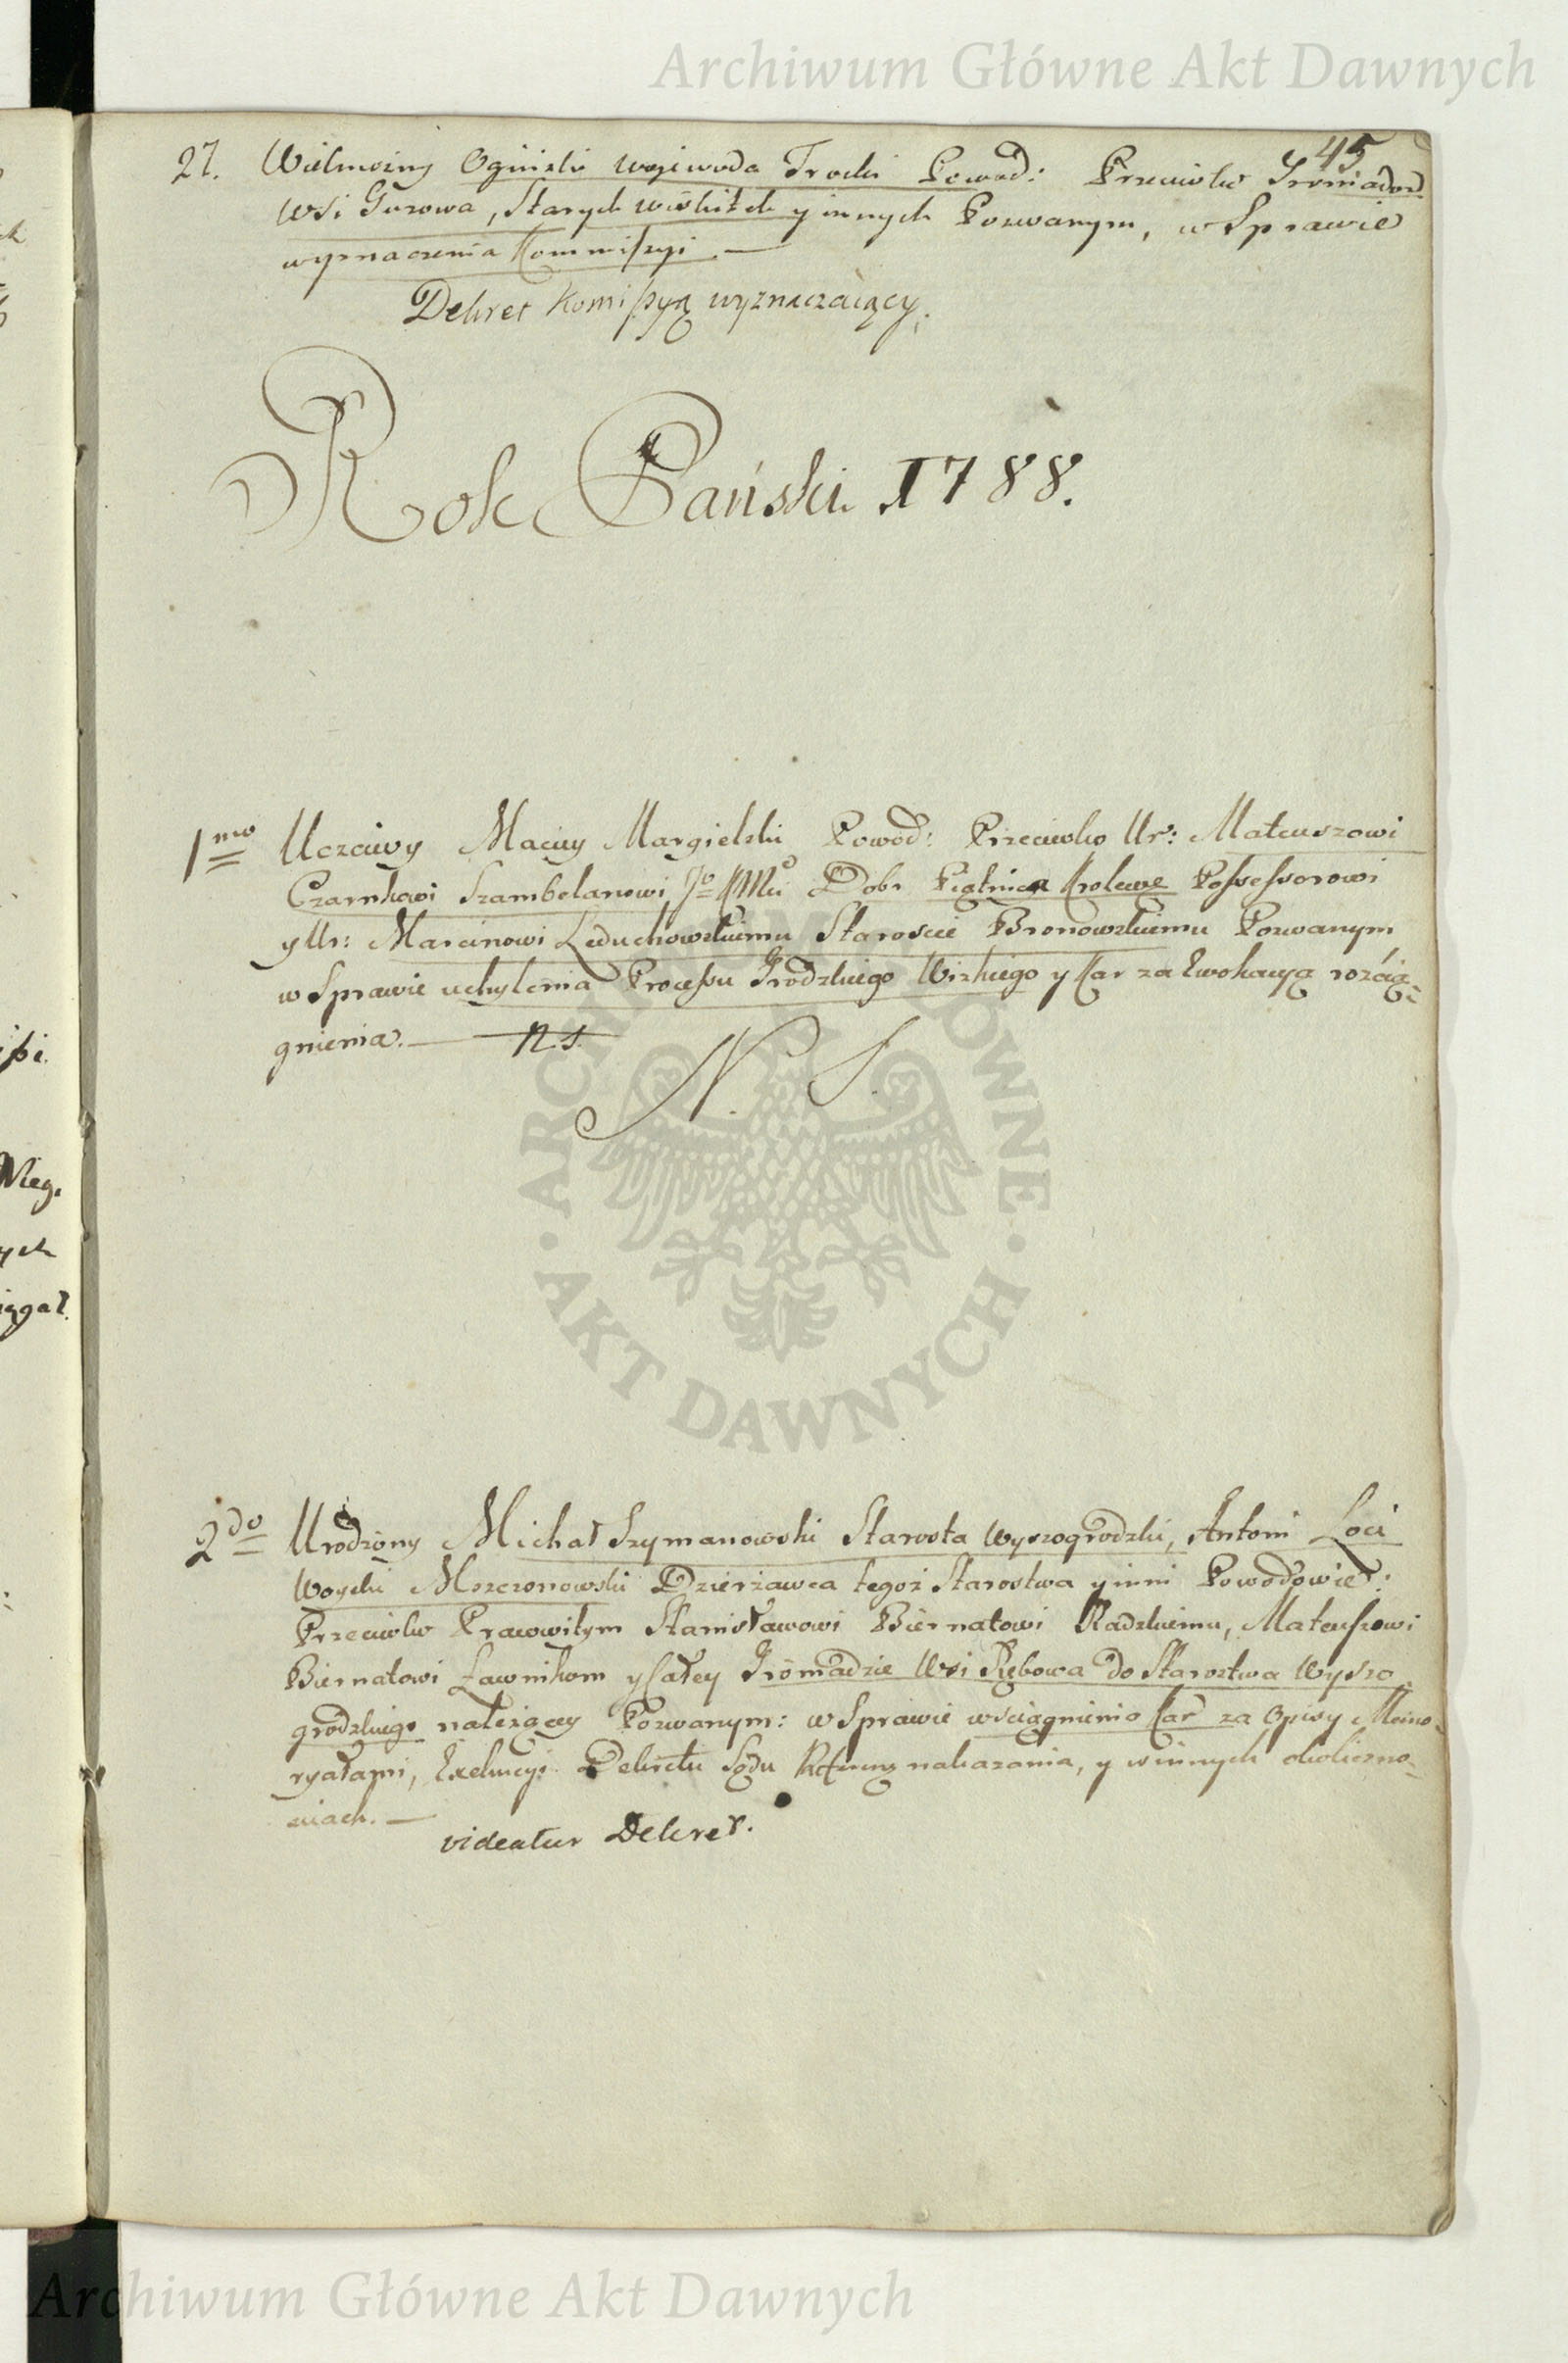 Archiwum Główne Akt Dawnych
45
27. Wielmożny Ogiński Woiewoda Trocki Powod: Przeciwko Gromadom
Wsi Guzowa, Starych Wiskitek y innych Pozwanym, w Sprawie
wyznaczenia Kommissyi. —
Dekret Komissyą wyznaczaiący.
Rok Pański 1788.
1mo Uczciwy Maciey Margielski Powod: Przeciwko Ur: Mateuszowi
Czarnkowi Szambelanowi JoKMci Dobr Piątnica Krolewe Possessorowi
y Ur: Marcinowi Leduchowskiemu Staroscie Bronowskiemu Pozwanym
w Sprawie uchylenia Processu Grodzkiego Wizkiego y Kar za Ewokacyą rozcią-
gnienia. — n.s.
N. S.
2do Urodzony Michał Szymanowski Starosta Wyszogrodzki, Antoni Loci
Woyski Mszczonowski Dzierżawca tegoż Starostwa y inni Powodowie:
Przeciwko Pracowitym Stanisławowi Biernatowi Radzkiemu, Mateuszowi
Biernatowi Ławnikom y Całey Gromadzie Wsi Rębowa do Starostwa Wyszo-
grodzkiego należącey Pozwanym: w Sprawie wsciągnienia Kar za Opisy Memo-
ryałami, Exekucyi Dekretu Sądu Refńeng nakazania, y w innych okoliczno-
sciach. —
videatur Dekret.
ARCHIWUM GŁÓWNE · AKT DAWNYCH ·
Archiwum Główne Akt Dawnych